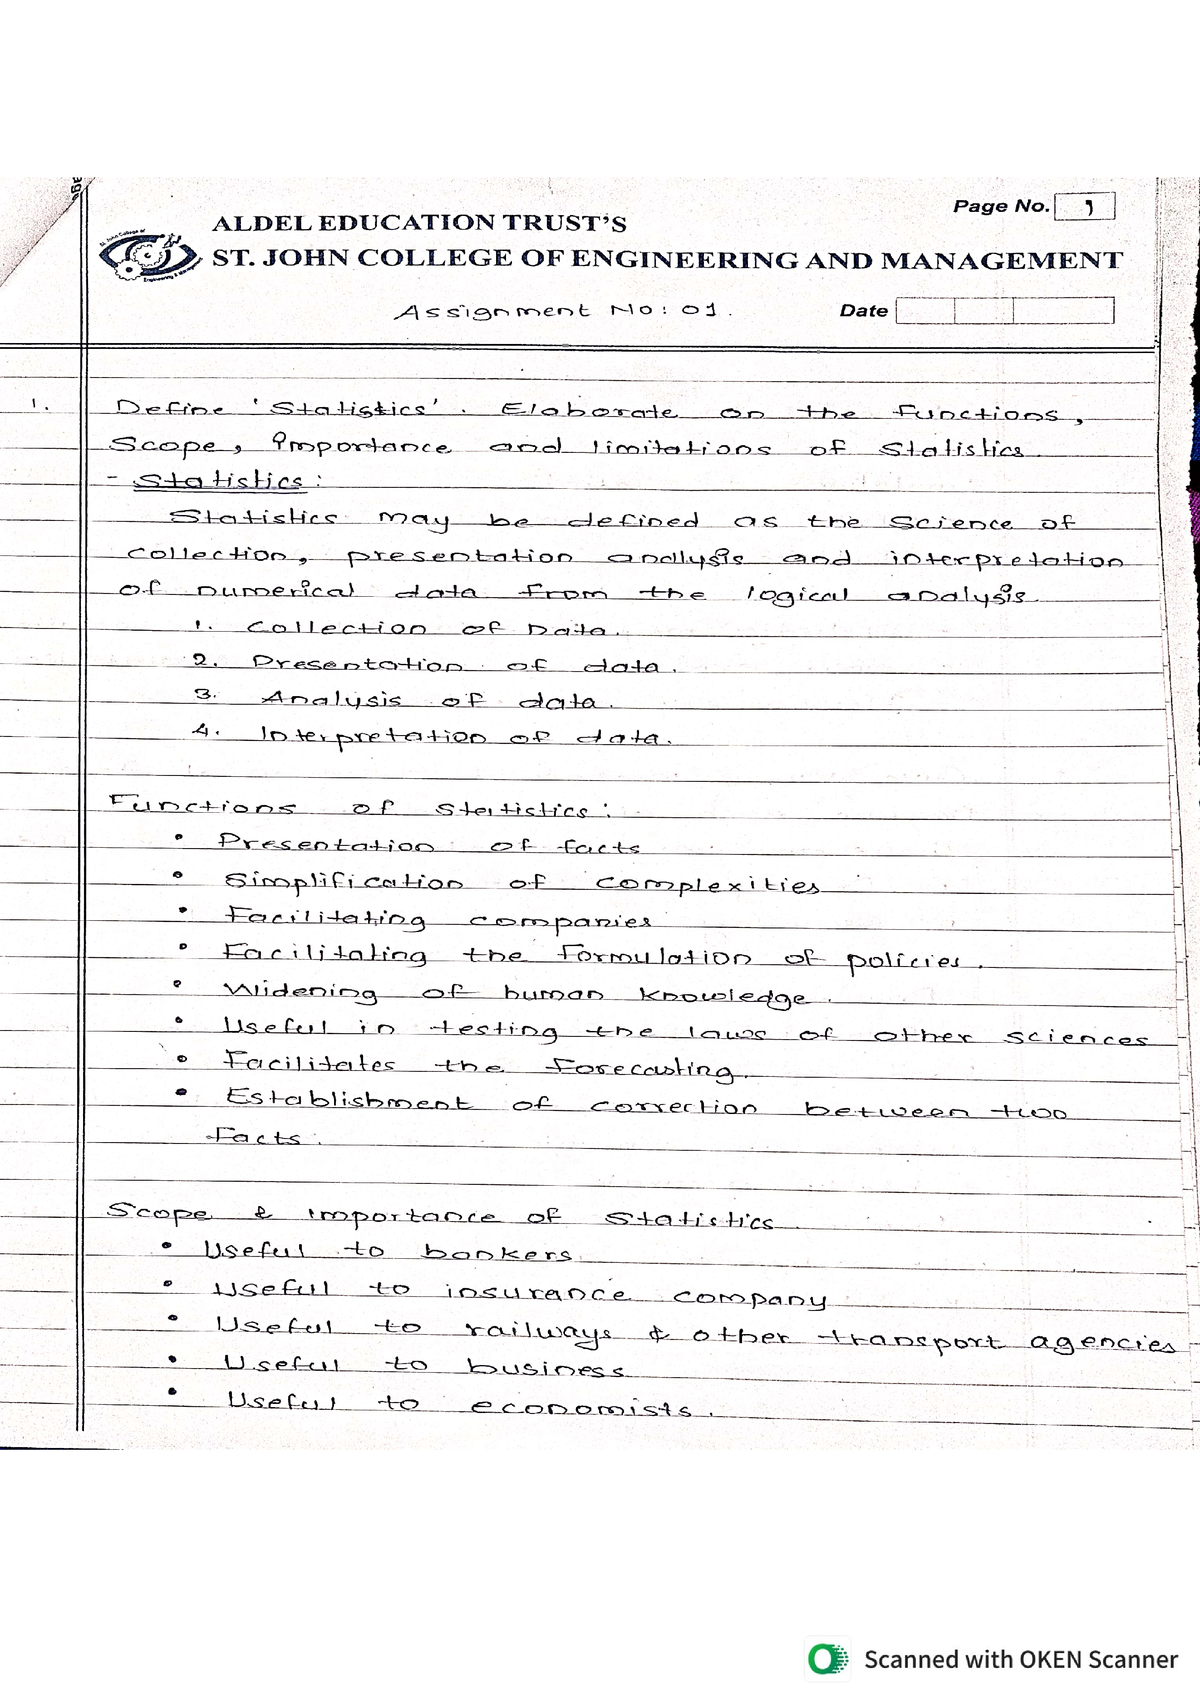 Page No. 1
ALDEL EDUCATION TRUST'S
ST. JOHN COLLEGE OF ENGINEERING AND MANAGEMENT
Assignment No: 01.
Date
1. Define 'Statistics'. Elaborate on the functions,
Scope, Importance and limitations of Statistics.
- Statistics:
Statistics may be defined as the Science of
collection, presentation analysis and interpretation
of numerical data from the logical analysis.
1. Collection of Data.
2. Presentation of data.
3. Analysis of data.
4. Interpretation of data.
Functions of Statistics:
• Presentation of facts
• Simplification of complexities
• Facilitating companies
• Facilitating the formulation of policies.
• Widening of human knowledge.
• Useful in testing the laws of other sciences
• Facilitates the forecasting.
• Establishment of correction between two
facts.
Scope & importance of Statistics.
• Useful to bankers.
• Useful to insurance company
• Useful to railways & other transport agencies
• Useful to business
• Useful to economists.
Scanned with OKEN Scanner